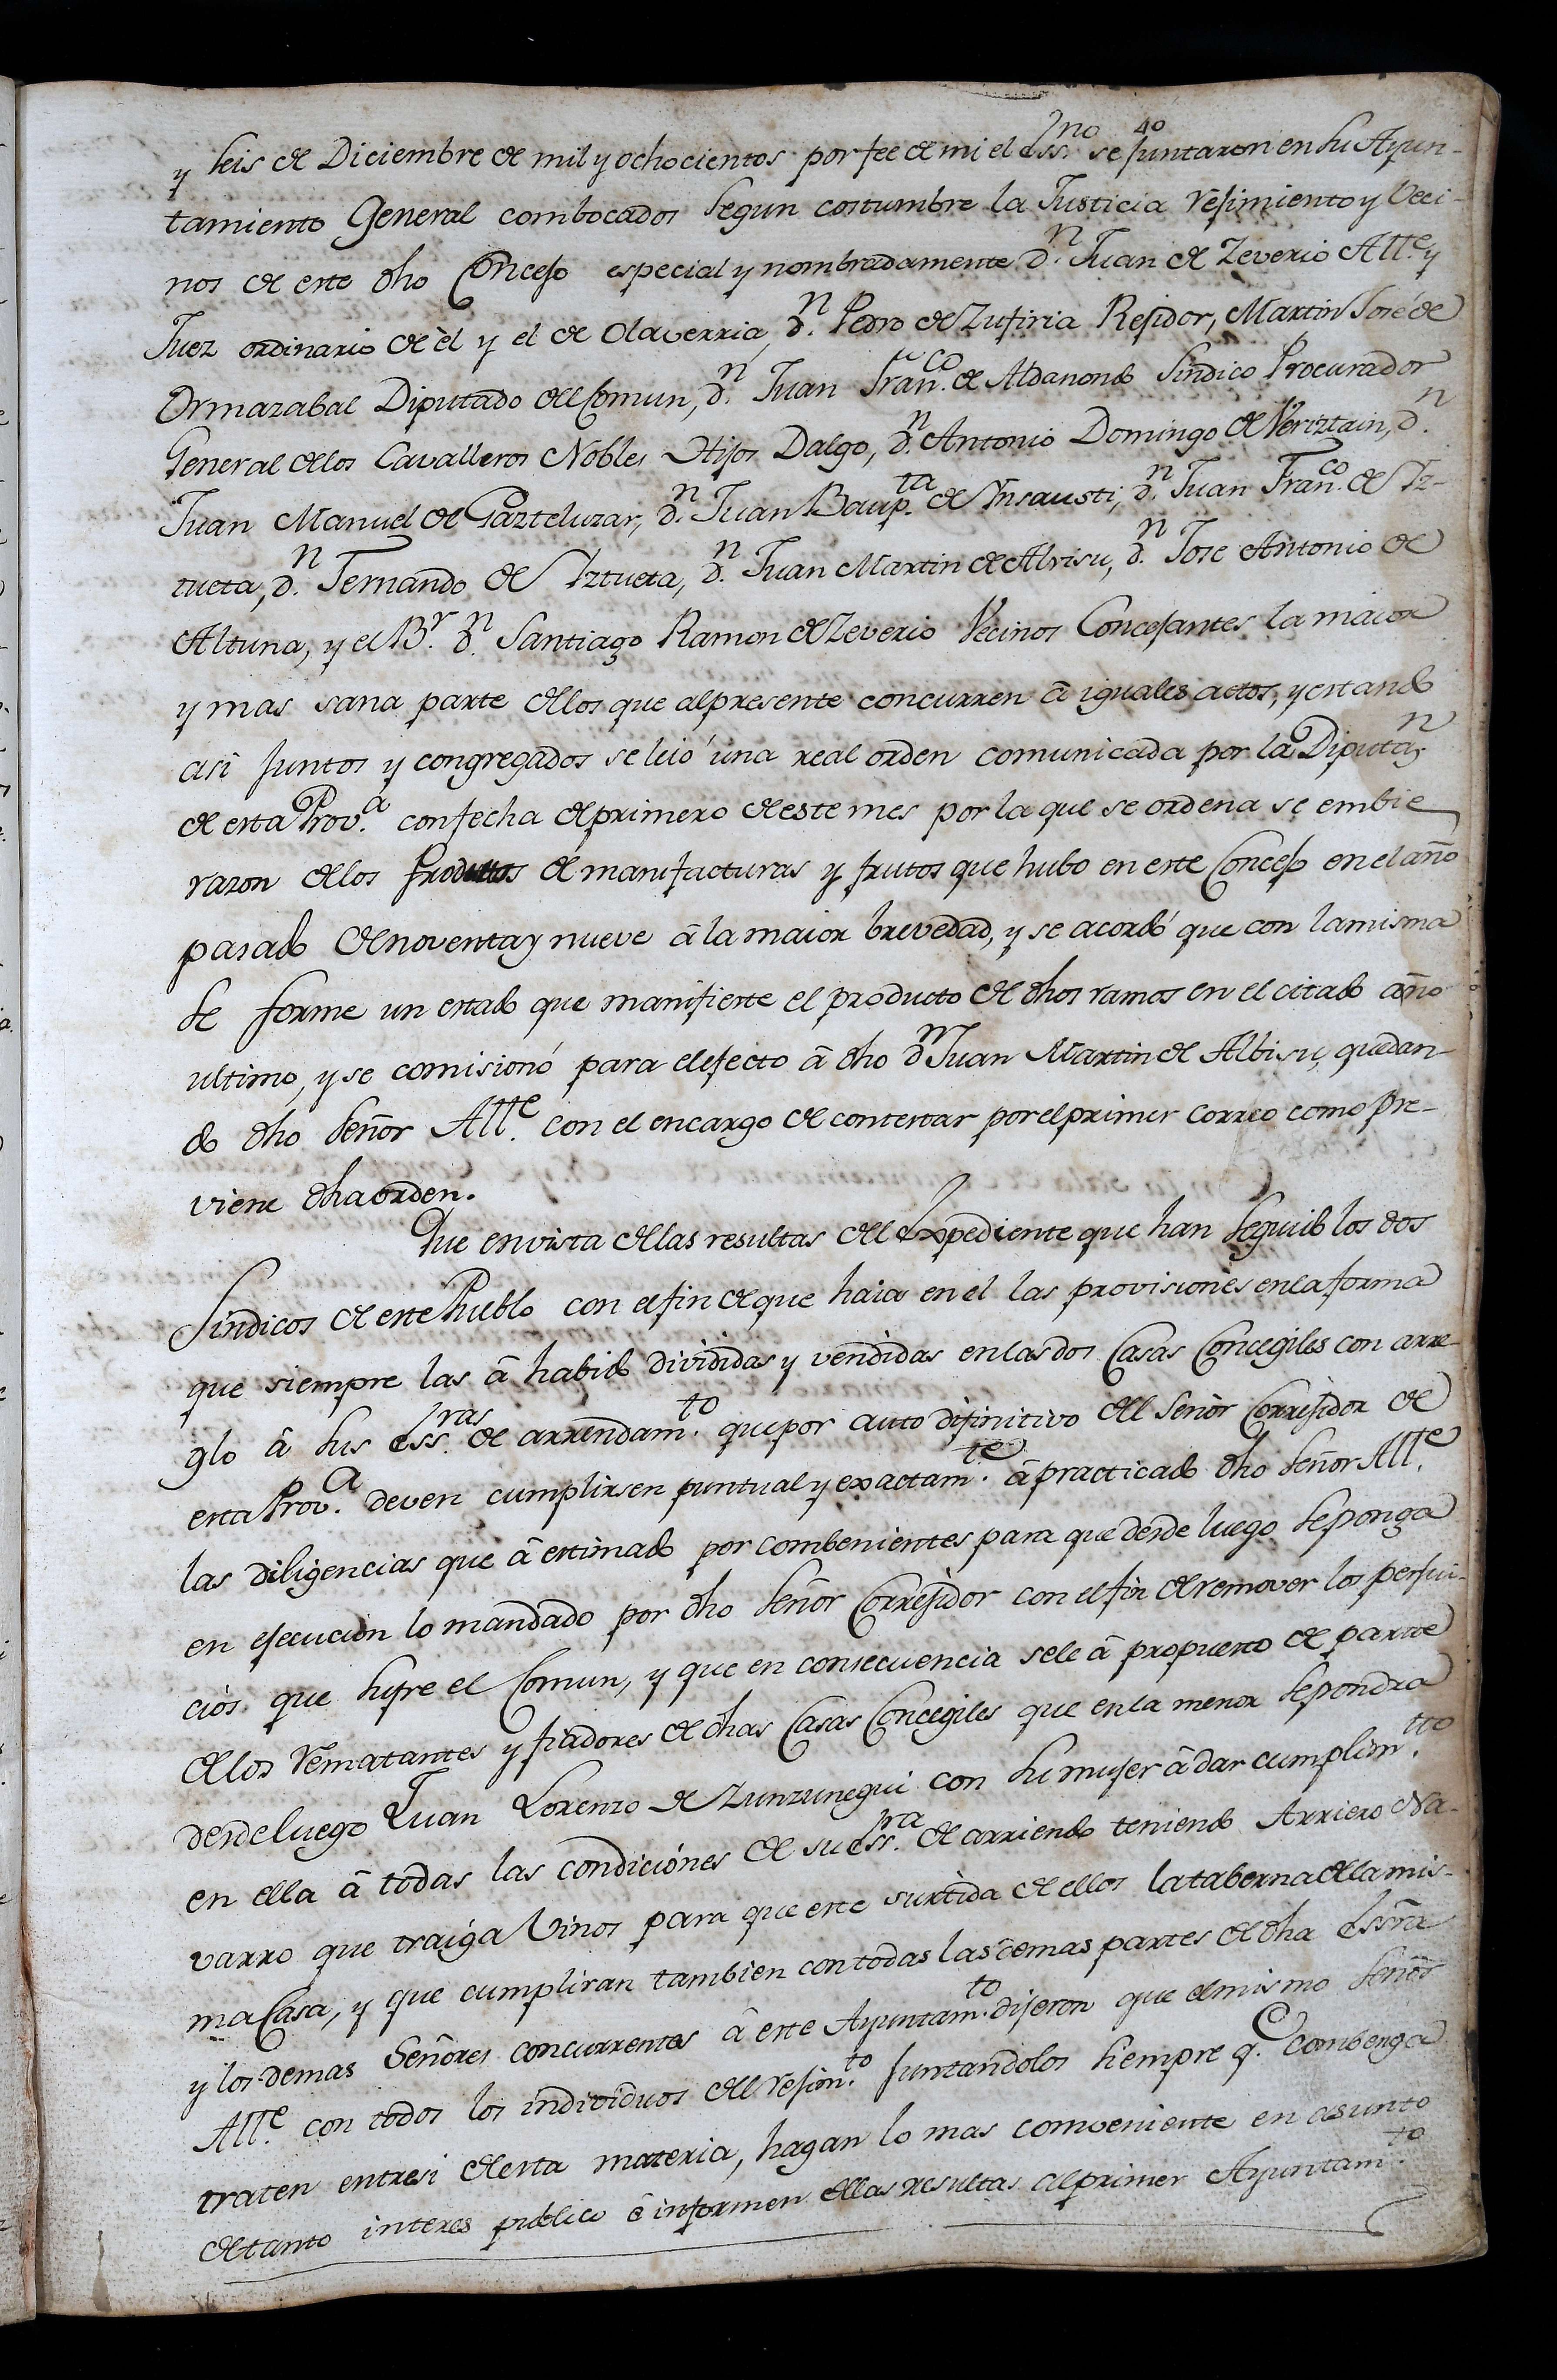 40
y seis de Diciembre de mil y ochocientos por fee de mi el Ess.no se juntaron en su Ayun-
tamiento General combocados segun costumbre la Justicia Rejimiento y Veci-
nos de este dho Concejo especial y nombradamente d.n Juan de Zeverio All.e y
Juez ordinario de èl y el de Olaverria, d.n Pedro de Zufiria Rejidor, Martin José de
Ormazabal Diputado del Comun, d.n Juan Fran.co de Aldanondo Sindico Procurador
General de los Cavalleros Nobles Hijos Dalgo, d.n Antonio Domingo de Veriztain, d.n
Juan Manuel de Gazteluzar, d.n Juan Baup.ta de Ynsausti, d.n Juan Fran.co de Yz-
tueta, d.n Fernando de Yztueta, d.n Juan Martin de Alvisu, d.n Jose Antonio de
Altuna, y el B.r d.n Santiago Ramon de Zeverio Vecinos Concejantes la maior
y mas sana parte de los que al presente concurren â iguales actos, y estando
asi juntos y congregados se leió una real orden comunicada por la Diputaz.n
de esta Prov.a con fecha de primero de este mes por la que se ordena se embie
razon de los productos de manifacturas y frutos que hubo en este Concejo en el año
pasado de noventa y nueve â la maior brevedad, y se acordó que con la misma
se forme un estado que manifieste el producto de dhos ramos en el citado año
ultimo, y se comisionó para el efecto â dho d.n Juan Martin de Albisu, quedan-
do dho Señor All.e con el encargo de contestar por el primer correo como pre-
viene dha orden.
Que en vista de las resultas del Expediente que han seguido los dos
Sindicos de este Pueblo con el fin de que haia en el las provisiones en la forma
que siempre las â habido divididas y vendidas en las dos Casas Concegiles con arre-
glo â sus Ess.ras de arrendam.to que por auto difinitivo del Señor Correjidor de
esta Prov.a deven cumplirsen puntual y exactam.te â practicado dho Señor All.e
las diligencias que â estimado por combenientes para que desde luego se ponga
en ejecucion lo mandado por dho Señor Correjidor con el fin de remover los perjui-
cios que sufre el Comun, y que en consecuencia se le â propuesto de partte
de los Rematantes y fiadores de dhas Casas Concegiles que en la menor se pondra
desde luego Juan Lorenzo de Zunzunegui con su mujer â dar cumplim.tto
en ella â todas las condiciónes de su ess.ra de arriendo teniendo Arriero Na-
varro que traiga Vinos para que este surtida de ellos la taberna de la mis-
ma Casa, y que cumpliran tambien con todas las demas partes de dha Essrã
y los demas Señores concurrentes â este Ayuntam.to dijeron que el mismo Señor
All.e con todos los individuos del Rejim.to juntandolos siempre q.e combenga
traten entresi de esta materia, hagan lo mas conveniente en asunto
de tanto interes publico ê informen de las resultas al primer Ayuntam.to